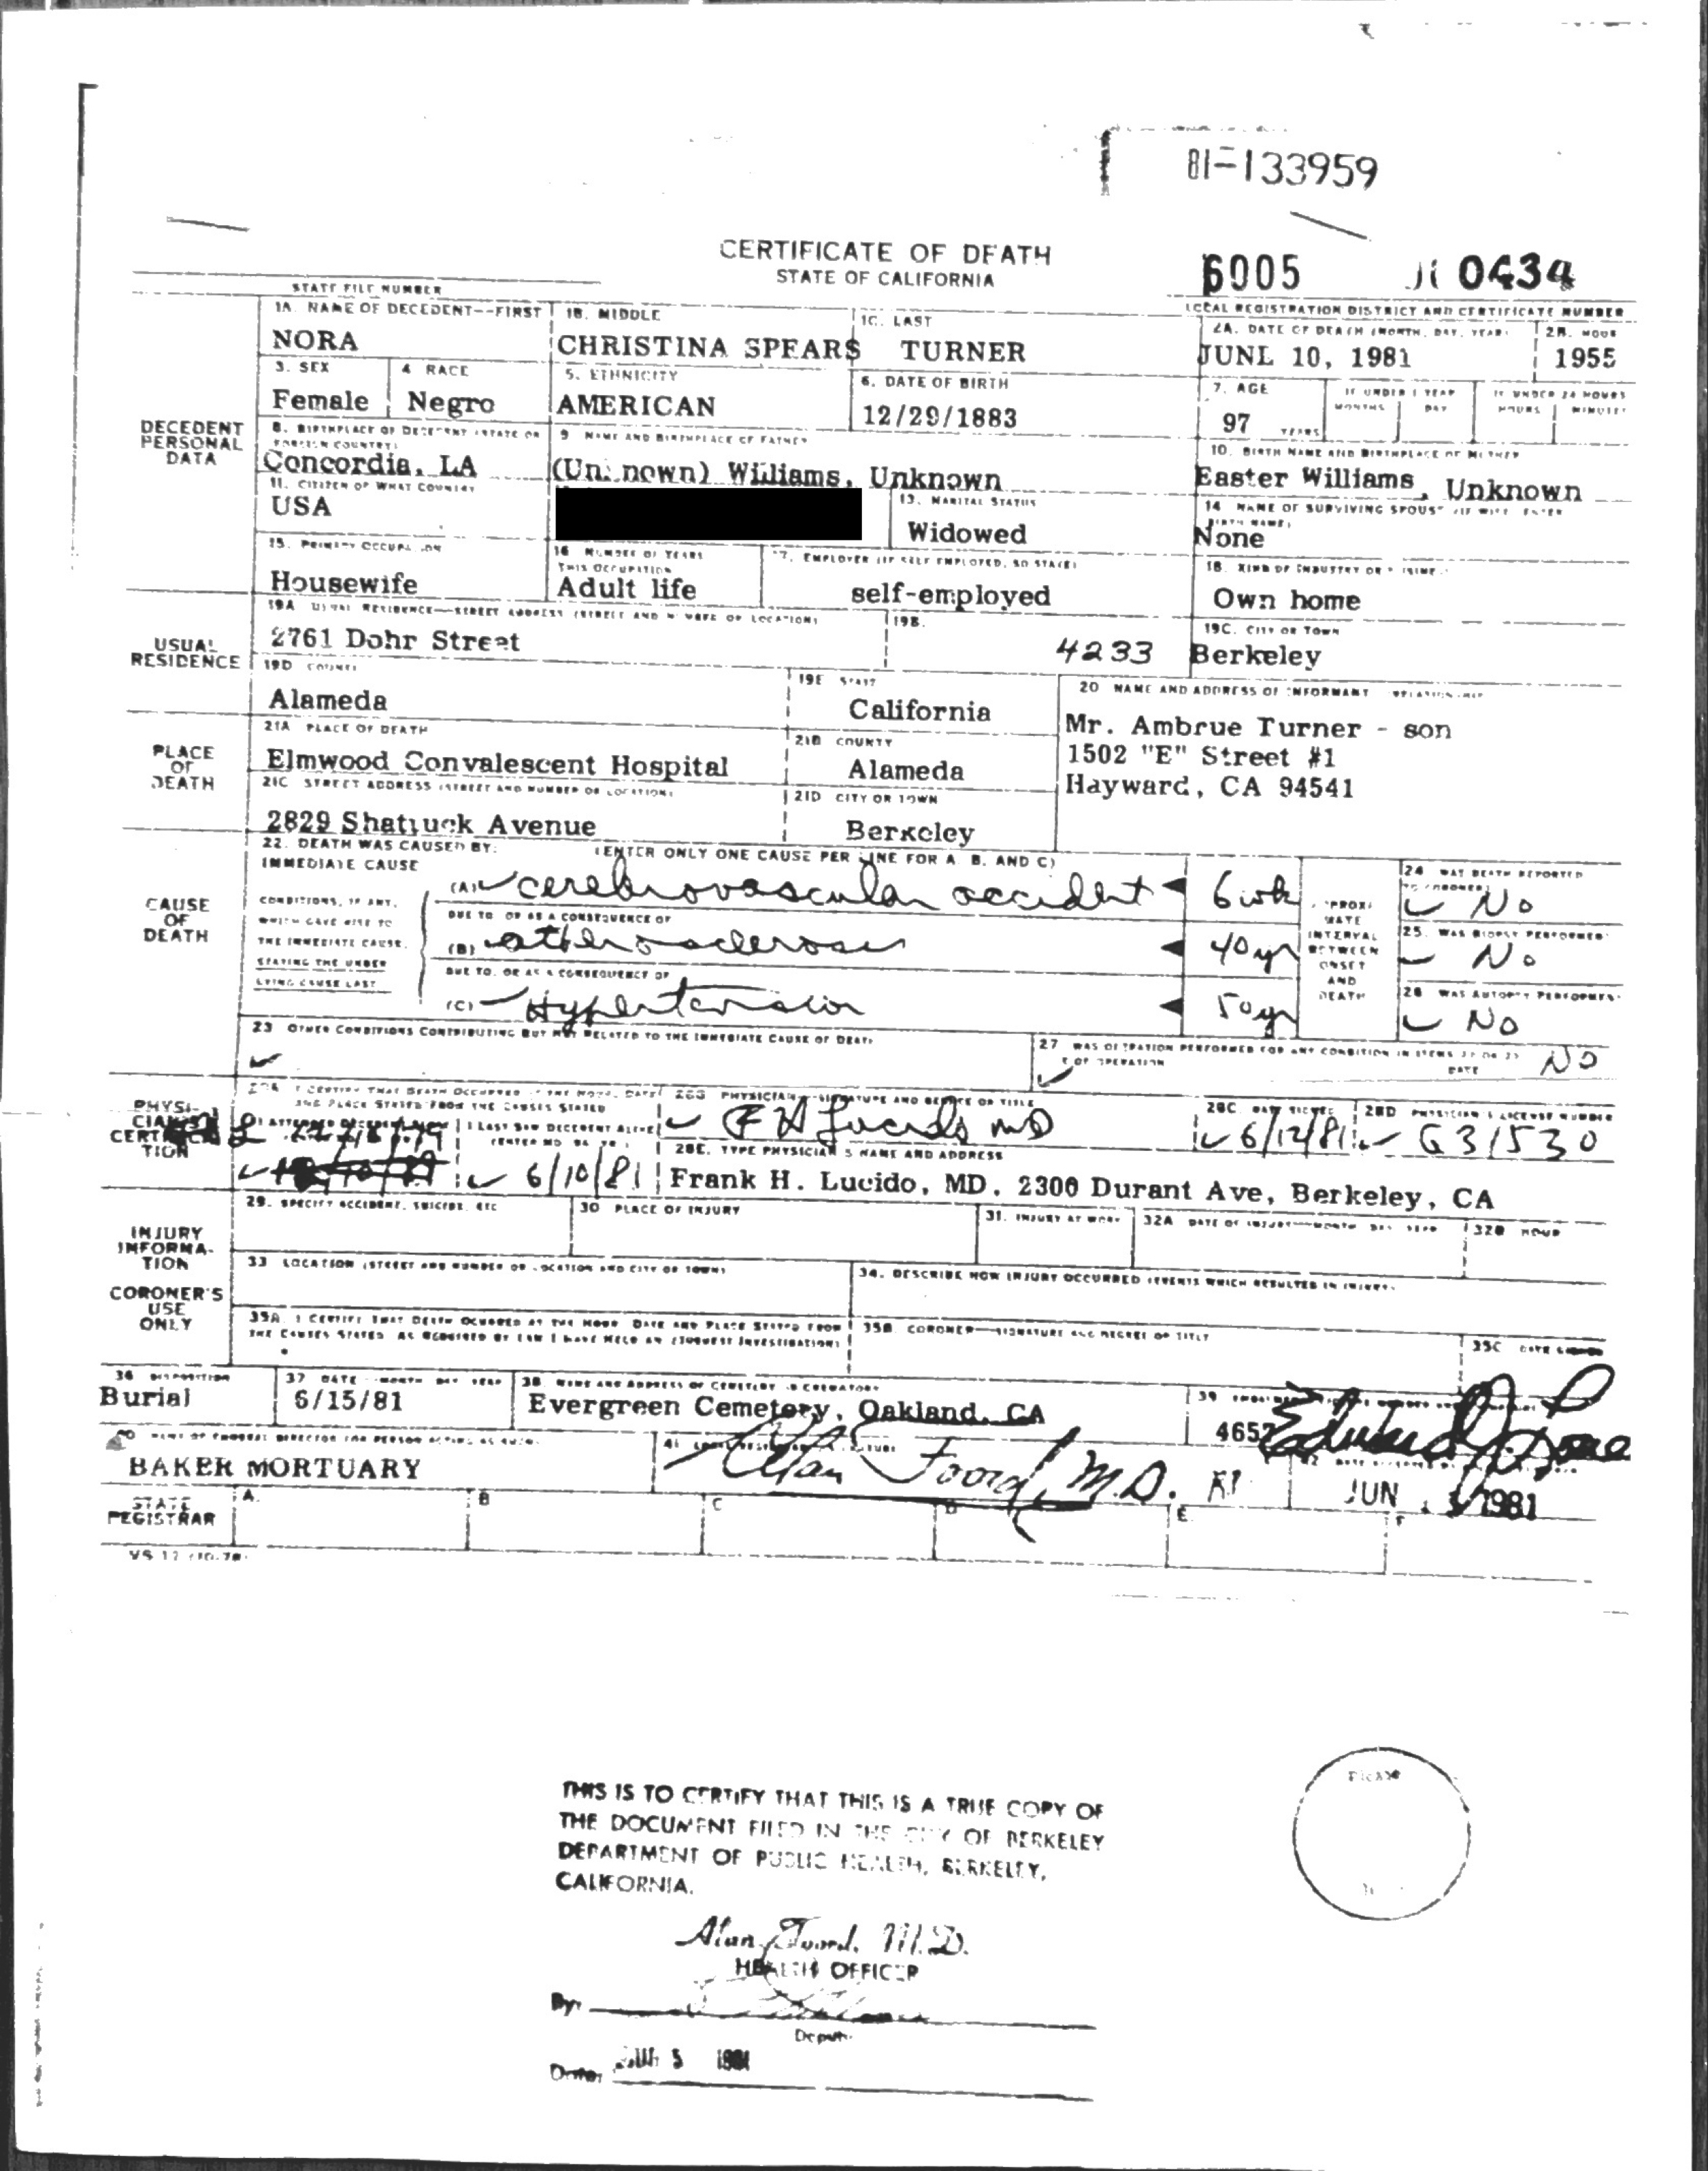 81-133959
CERTIFICATE OF DEATH
STATE OF CALIFORNIA
6005 0434
STATE FILE NUMBER
LOCAL REGISTRATION DISTRICT AND CERTIFICATE NUMBER
1A. NAME OF DECEDENT--FIRST 1B. MIDDLE 1C. LAST 2A. DATE OF DEATH (MONTH, DAY, YEAR) 2B. HOUR
NORA CHRISTINA SPEARS TURNER JUNE 10, 1981 1955
3. SEX 4. RACE 5. ETHNICITY 6. DATE OF BIRTH 7. AGE IF UNDER 1 YEAR IF UNDER 24 HOURS
MONTHS DAY HOURS MINUTES
Female Negro AMERICAN 12/29/1883 97 YEARS
DECEDENT
PERSONAL
DATA
8. BIRTHPLACE OF DECEDENT (STATE OR FOREIGN COUNTRY) 9. NAME AND BIRTHPLACE OF FATHER 10. BIRTH NAME AND BIRTHPLACE OF MOTHER
Concordia, LA (Unknown) Williams, Unknown Easter Williams, Unknown
11. CITIZEN OF WHAT COUNTRY 13. MARITAL STATUS 14. NAME OF SURVIVING SPOUSE (IF WIFE, ENTER BIRTH NAME)
USA Widowed None
15. PRIMARY OCCUPATION 16. NUMBER OF YEARS THIS OCCUPATION 17. EMPLOYER (IF SELF EMPLOYED, SO STATE) 18. KIND OF INDUSTRY OR
Housewife Adult life self-employed Own home
USUAL
RESIDENCE
19A. USUAL RESIDENCE—STREET ADDRESS (STREET AND NUMBER OR LOCATION) 19B. 19C. CITY OR TOWN
2761 Dohr Street 4233 Berkeley
19D. COUNTY 19E. STATE 20. NAME AND ADDRESS OF INFORMANT RELATIONSHIP
Alameda California
Mr. Ambrue Turner - son
1502 "E" Street #1
Hayward, CA 94541
PLACE
OF
DEATH
21A. PLACE OF DEATH 21B. COUNTY
Elmwood Convalescent Hospital Alameda
21C. STREET ADDRESS (STREET AND NUMBER OR LOCATION) 21D. CITY OR TOWN
2829 Shattuck Avenue Berkeley
CAUSE
OF
DEATH
22. DEATH WAS CAUSED BY: (ENTER ONLY ONE CAUSE PER LINE FOR A, B, AND C)
IMMEDIATE CAUSE
(A) cerebrovascular accident 6 wk
CONDITIONS, IF ANY,
WHICH GAVE RISE TO
THE IMMEDIATE CAUSE,
STATING THE UNDER
LYING CAUSE LAST
DUE TO, OR AS A CONSEQUENCE OF
(B) atherosclerosis 40 yr
DUE TO, OR AS A CONSEQUENCE OF
(C) Hypertension 50 yr
APPROXI
MATE
INTERVAL
BETWEEN
ONSET
AND
DEATH
24. WAS DEATH REPORTED TO CORONER?
No
25. WAS BIOPSY PERFORMED?
No
26. WAS AUTOPSY PERFORMED?
No
23. OTHER CONDITIONS CONTRIBUTING BUT NOT RELATED TO THE IMMEDIATE CAUSE OF DEATH
27. WAS OPERATION PERFORMED FOR ANY CONDITION IN ITEMS 22 OR 23
OF OPERATION DATE NO
PHYSI-
CIAN'S
CERTIFICA
TION
28A. I CERTIFY THAT DEATH OCCURRED AT THE HOUR, DATE AND PLACE STATED FROM THE CAUSES STATED
28B. PHYSICIAN—SIGNATURE AND DEGREE OR TITLE 28C. DATE SIGNED 28D. PHYSICIAN'S LICENSE NUMBER
F H Lucido MD 6/12/81 G31530
I LAST SAW DECEDENT ALIVE
6/10/81
28E. TYPE PHYSICIAN'S NAME AND ADDRESS
Frank H. Lucido, MD, 2300 Durant Ave, Berkeley, CA
INJURY
INFORMA-
TION
CORONER'S
USE
ONLY
29. SPECIFY ACCIDENT, SUICIDE, ETC 30. PLACE OF INJURY 31. INJURY AT WORK 32A. DATE OF INJURY—MONTH DAY YEAR 32B. HOUR
33. LOCATION (STREET AND NUMBER OR LOCATION AND CITY OR TOWN) 34. DESCRIBE HOW INJURY OCCURRED (EVENTS WHICH RESULTED IN INJURY)
35A. I CERTIFY THAT DEATH OCCURRED AT THE HOUR, DATE AND PLACE STATED FROM
THE CAUSES STATED, AS REQUIRED BY LAW I HAVE HELD AN (INQUEST INVESTIGATION)
35B. CORONER—SIGNATURE AND DEGREE OR TITLE 35C. DATE SIGNED
36. DISPOSITION 37. DATE—MONTH DAY YEAR 38. NAME AND ADDRESS OF CEMETERY OR CREMATORY 39.
Burial 6/15/81 Evergreen Cemetery, Oakland, CA 4657
40. NAME OF FUNERAL DIRECTOR (OR PERSON ACTING AS SUCH) 41.
BAKER MORTUARY Alan Foord, M.D. JUN 1981
STATE
REGISTRAR
A. B C D E. F
VS 11 (10-78)
THIS IS TO CERTIFY THAT THIS IS A TRUE COPY OF
THE DOCUMENT FILED IN THE CITY OF BERKELEY
DEPARTMENT OF PUBLIC HEALTH, BERKELEY,
CALIFORNIA.
Alan Foord, M.D.
HEALTH OFFICER
By:
Deputy
Date: 5 1981